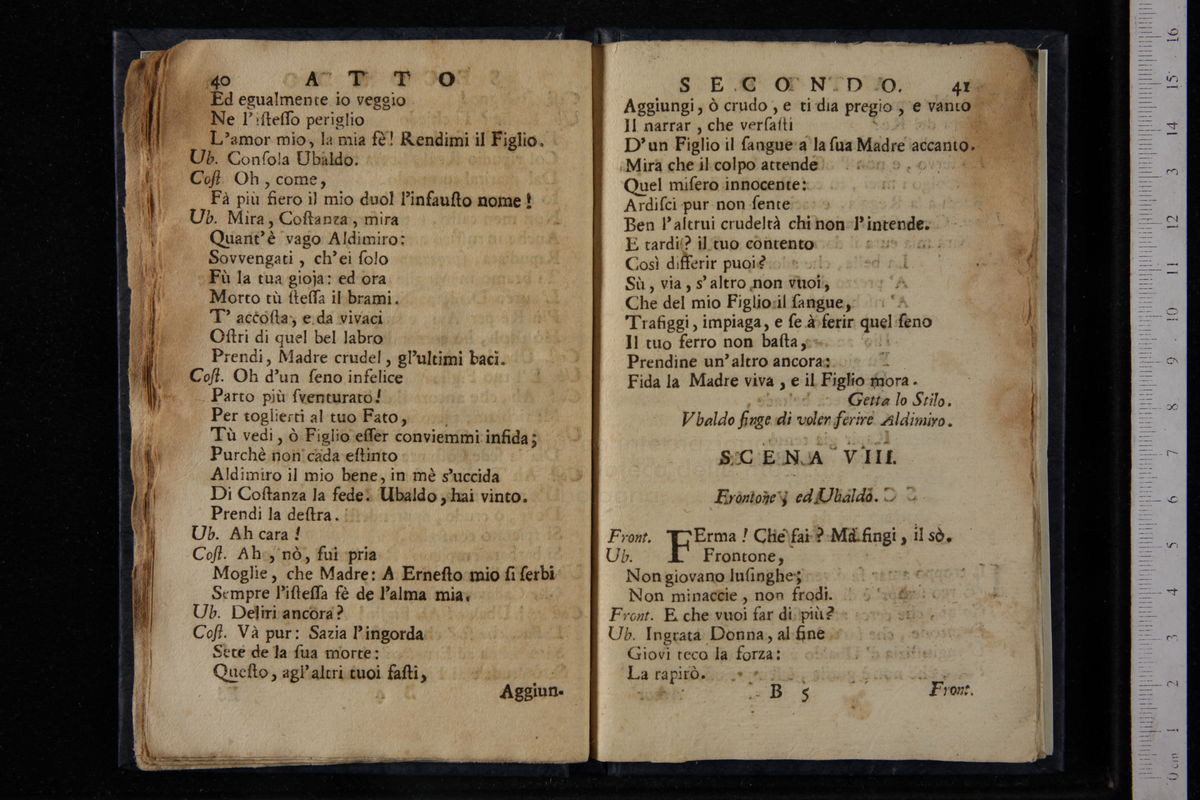 40 ATTO
Ed egualmente io veggio
Ne l'iſteſſo periglio
L'amor mio, la mia fè! Rendimi il Figlio.
Ub. Conſola Ubaldo.
Coſt. Oh, come,
Fà più fiero il mio duol l'infauſto nome!
Ub. Mira, Coſtanza, mira
Quant'è vago Aldimiro:
Sovvengati, ch'ei ſolo
Fù la tua gioja: ed ora
Morto tù ſteſſa il brami.
T'accoſta, e da vivaci
Oſtri di quel bel labro
Prendi, Madre crudel, gl'ultimi baci.
Coſt. Oh d'un ſeno infelice
Parto più ſventurato!
Per toglierti al tuo Fato,
Tù vedi, ò Figlio eſſer conviemmi infida;
Purchè non cada eſtinto
Aldimiro il mio bene, in mè s'uccida
Di Coſtanza la fede. Ubaldo, hai vinto.
Prendi la deſtra.
Ub. Ah cara!
Coſt. Ah, nò, fui pria
Moglie, che Madre: A Erneſto mio ſi ſerbi
Sempre l'iſteſſa fè de l'alma mia.
Ub. Deliri ancora?
Coſt. Và pur: Sazia l'ingorda
Sete de la ſua morte:
Queſto, agl'altri tuoi faſti,
Aggiun-
SECONDO. 41
Aggiungi, ò crudo, e ti dia pregio, e vanto
Il narrar, che verſaſti
D'un Figlio il ſangue a la ſua Madre accanto.
Mira che il colpo attende
Quel miſero innocente:
Ardiſci pur non ſente
Ben l'altrui crudeltà chi non l'intende.
E tardi? il tuo contento
Così differir puoi?
Sù, via, s'altro non vuoi,
Che del mio Figlio il ſangue,
Trafiggi, impiaga, e ſe à ferir quel ſeno
Il tuo ferro non baſta,
Prendine un'altro ancora:
Fida la Madre viva, e il Figlio mora.
Getta lo Stilo.
Vbaldo finge di voler ferire Aldimiro.
SCENA VIII.
Frontone, ed Ubaldo.
Front. FErma! Che fai? Mà fingi, il sò.
Ub. Frontone,
Non giovano luſinghe;
Non minaccie, non frodi.
Front. E che vuoi far di più?
Ub. Ingrata Donna, al fine
Giovi teco la forza:
La rapirò.
B 5 Front.